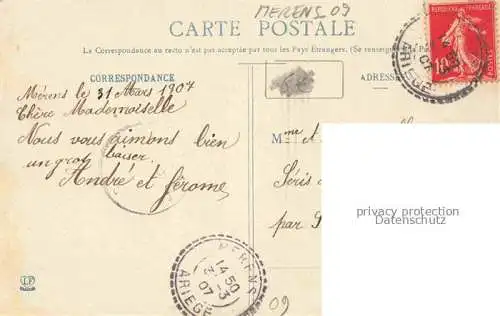 MERENS 09
CARTE POSTALE
La Correspondance au recto n'est pas acceptée par tous les Pays Etrangers. (Se renseigner
CORRESPONDANCE
ADRES
RÉPUBLIQUE FRANÇAISE
10
ARIEGE
Mérens le 31 Mars 1907
Chère Mademoiselle
Nous vous aimons bien
un gros baiser.
André et Jérome
Mme
Séris
par
privacy protection
Datenschutz
MERENS
14 50
31-3
07
ARIEGE
09